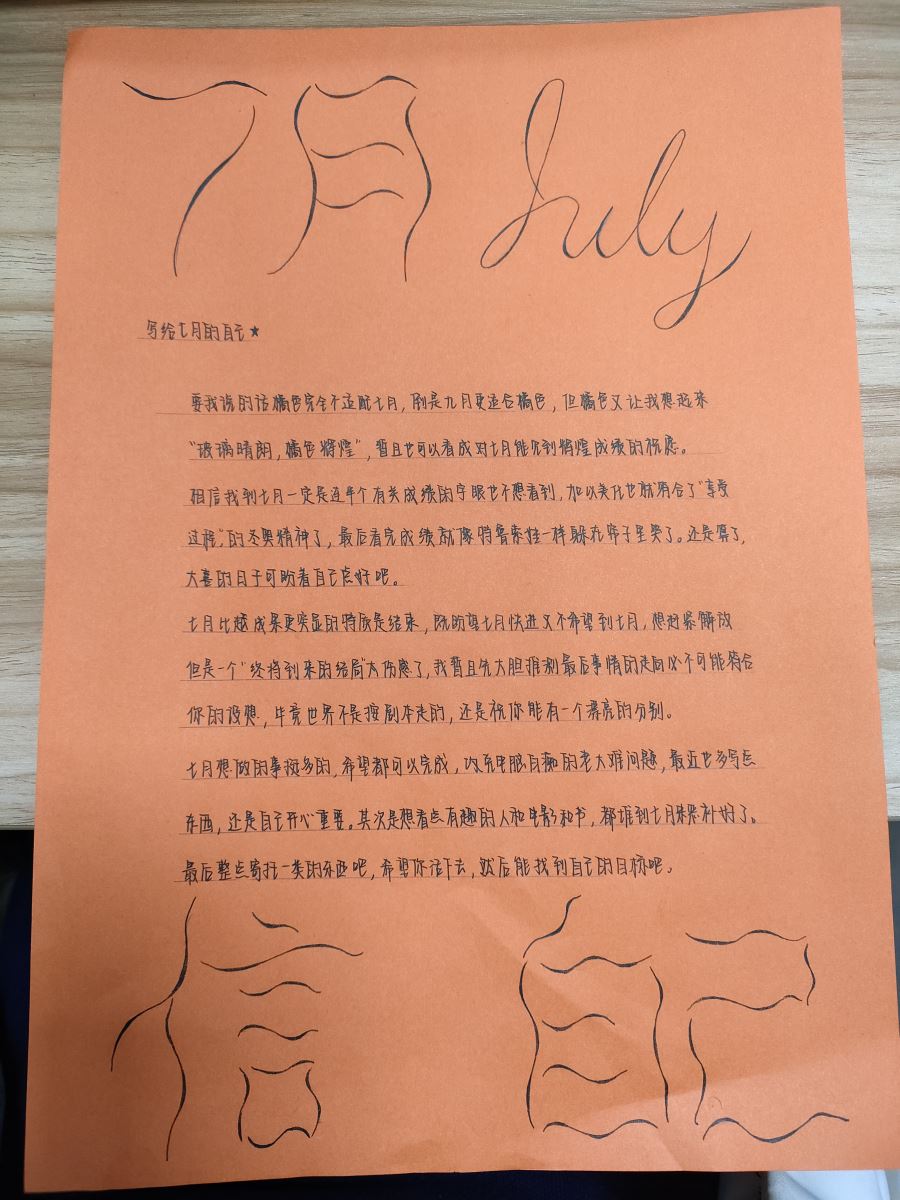 7月 July
写给七月的自己★
要我说的话橘色完全不适配七月，倒是九月更适合橘色，但橘色又让我想起来
“玻璃晴朗，橘色辉煌”，暂且也可以看成对七月能见到辉煌成绩的祝愿。
相信我到七月一定是连半个有关成绩的字眼也不想看到，加以美化也就符合了“享受
过程”的冬奥精神了，最后看完成绩就像特鲁索娃一样躲在帘子里哭了。还是算了，
大喜的日子可盼着自己点好吧。
七月比起成果更突显的特质是结束，既盼望七月快进又不希望到七月，想赶紧解放
但是一个“终将到来的结局”太伤感了，我暂且先大胆推测最后事情的走向必不可能符合
你的设想，毕竟世界不是按剧本走的，还是祝你能有一个漂亮的分别。
七月想做的事挺多的，希望都可以完成，攻克电脑白痴的老大难问题，最近也多写点
东西，还是自己开心重要。其次是想看点有趣的人和电影和书，都堆到七月来恶补好了。
最后整点寄托一类的东西吧，希望你活下去，然后能找到自己的目标吧。
信 自己